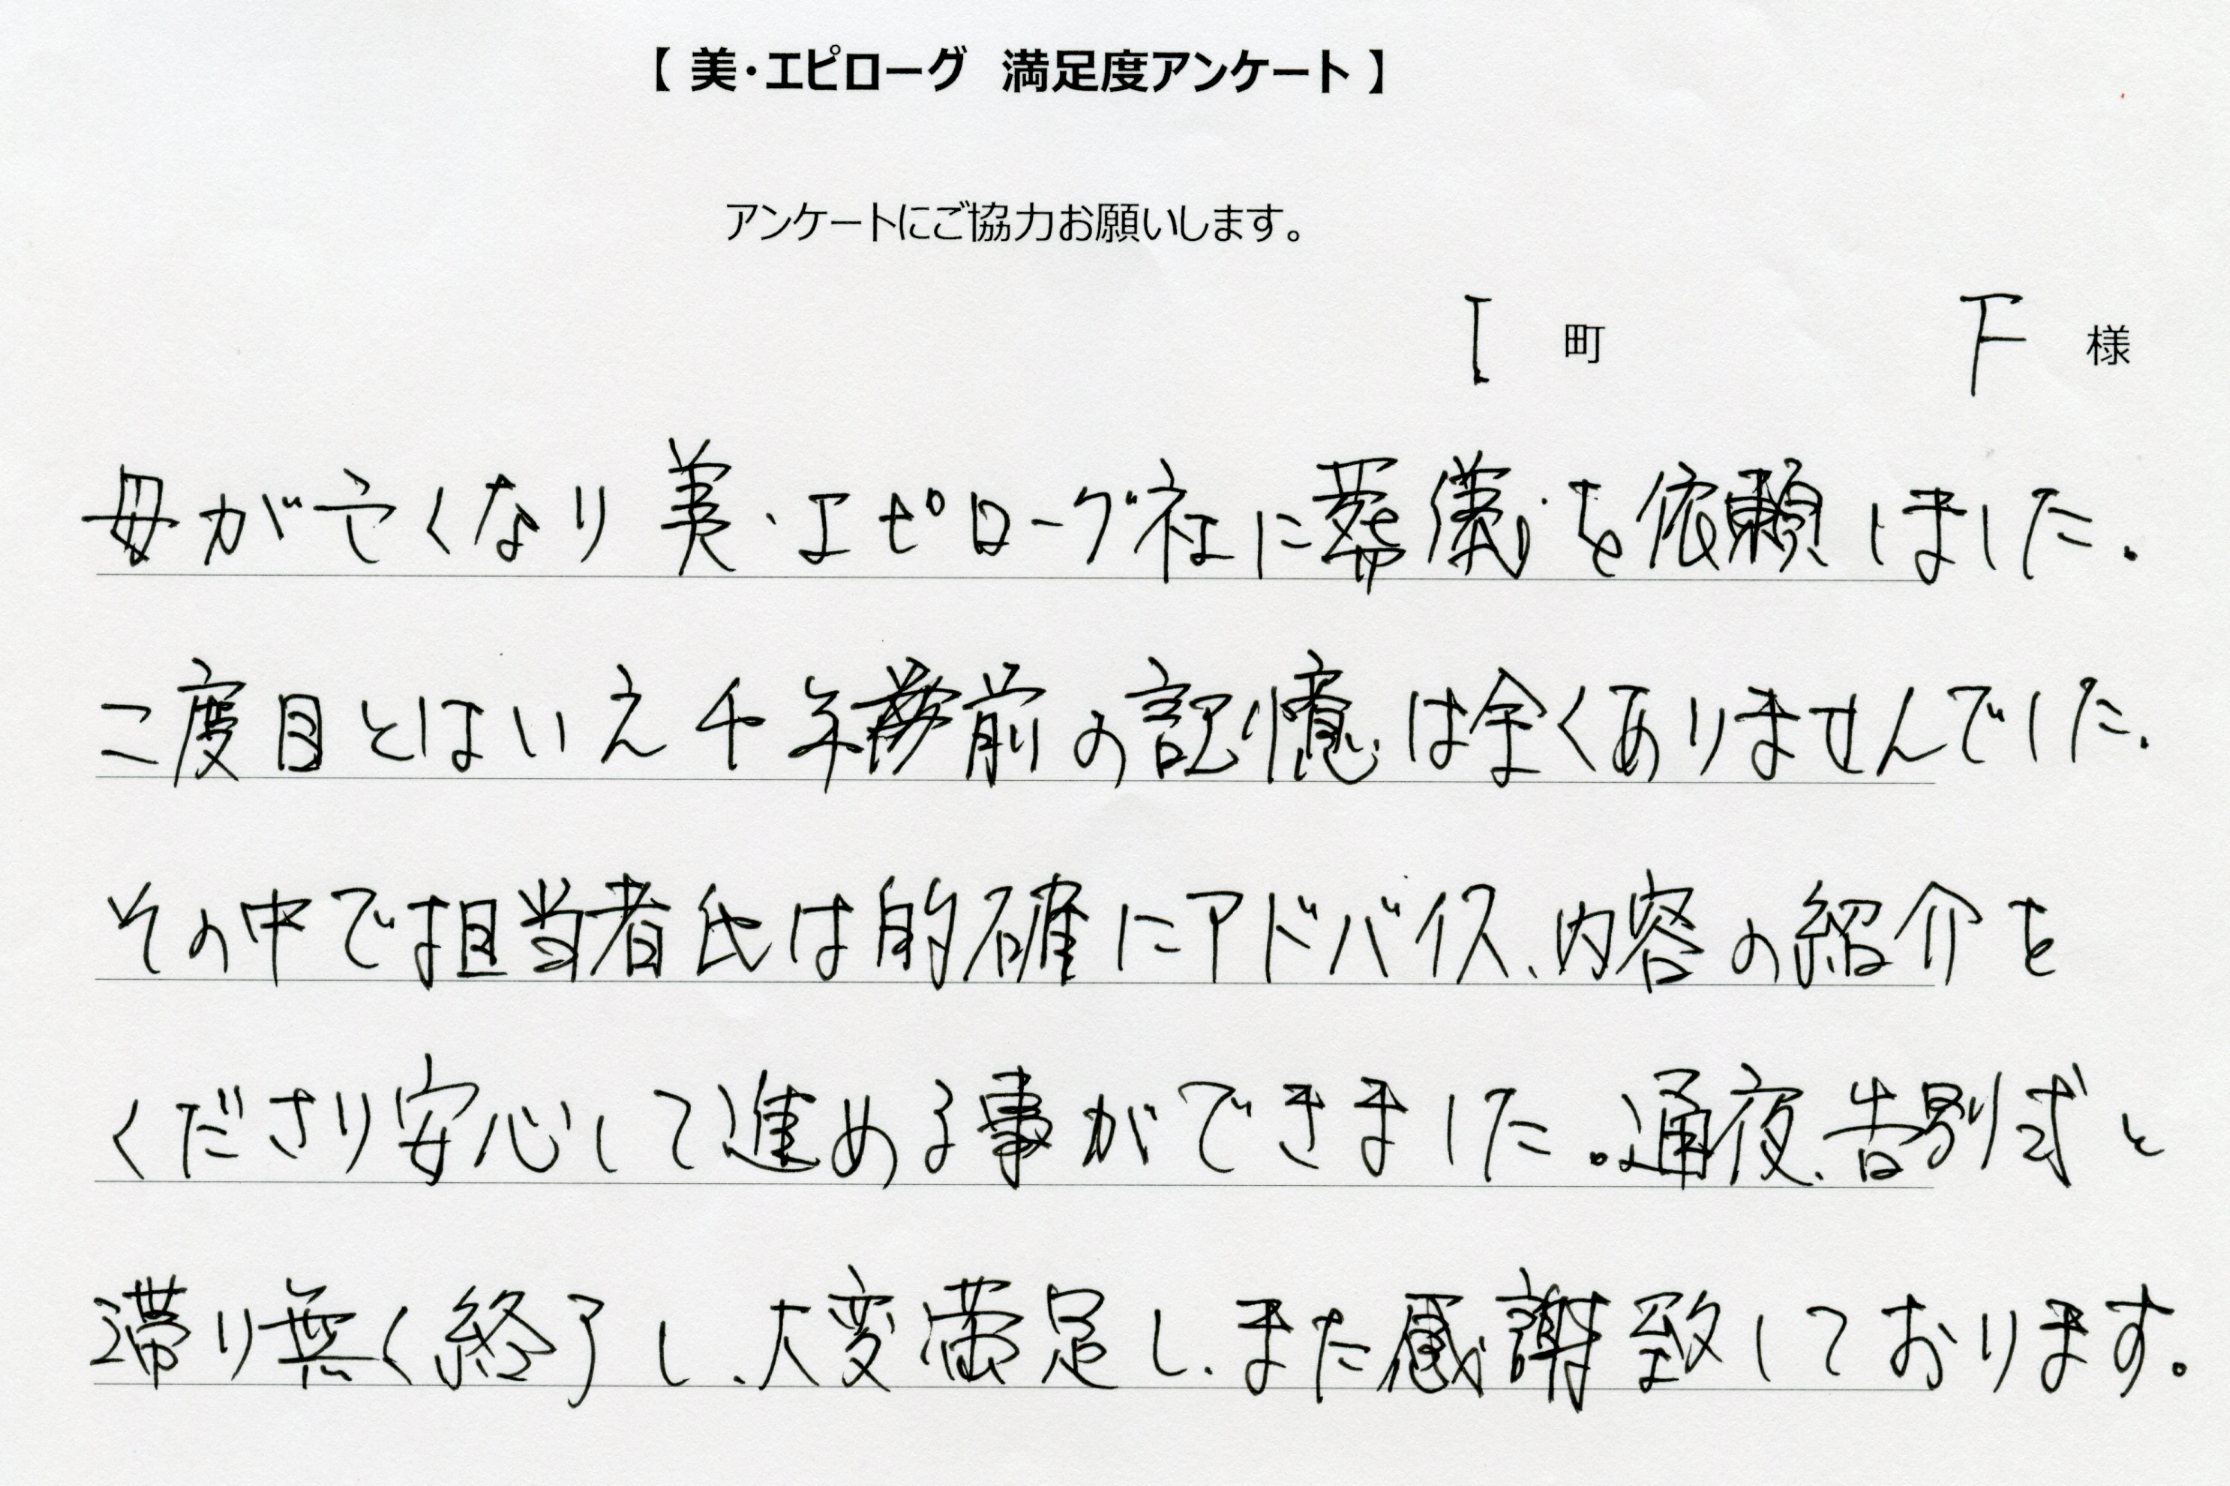 【 美・エピローグ 満足度アンケート 】
アンケートにご協力お願いします。
I 町 F 様
母が亡くなり美・エピローグ社に葬儀を依頼しました。
二度目とはいえ十年前の記憶は全くありませんでした。
その中で担当者氏は的確にアドバイス、内容の紹介を
くださり安心して進める事ができました。通夜、告別式と
滞り無く終了し、大変満足し、また感謝致しております。